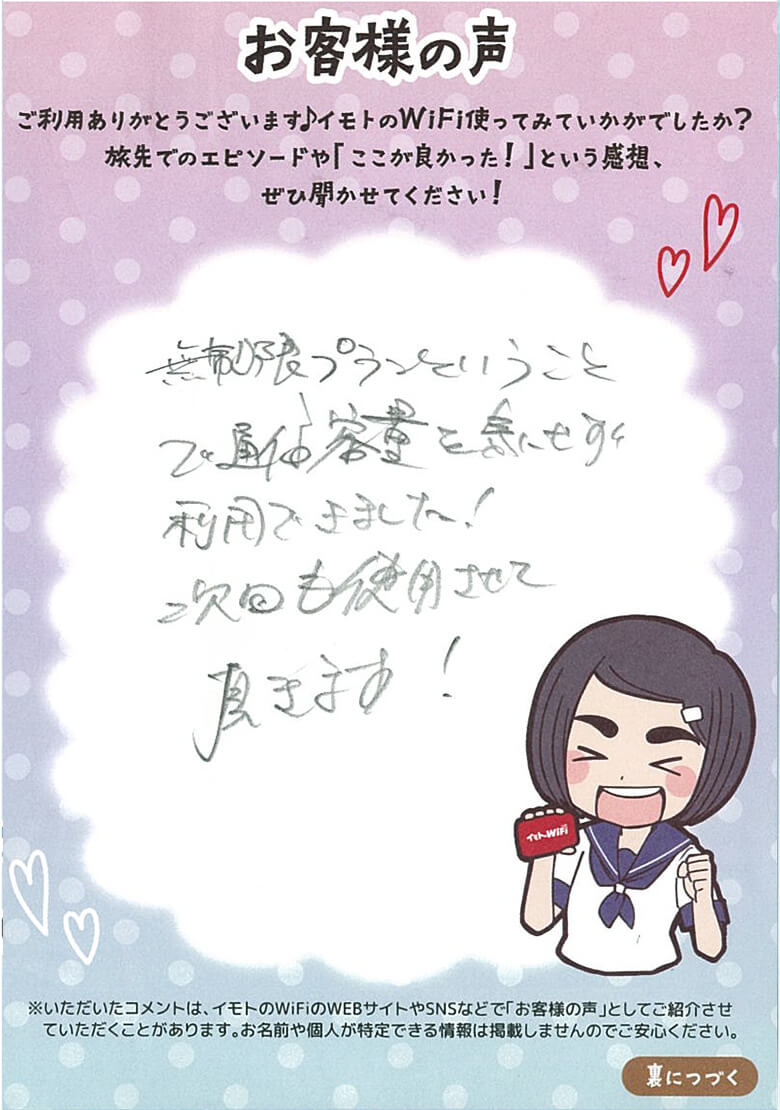 お客様の声
ご利用ありがとうございます♪イモトのWiFi使ってみていかがでしたか?
旅先でのエピソードや「ここが良かった!」という感想、
ぜひ聞かせてください!
無制限プランということ
で通信容量を気にせず
利用できました!
次回も使用させて
頂きます!
イモトのWiFi
※いただいたコメントは、イモトのWiFiのWEBサイトやSNSなどで「お客様の声」としてご紹介させ
ていただくことがあります。お名前や個人が特定できる情報は掲載しませんのでご安心ください。
裏につづく